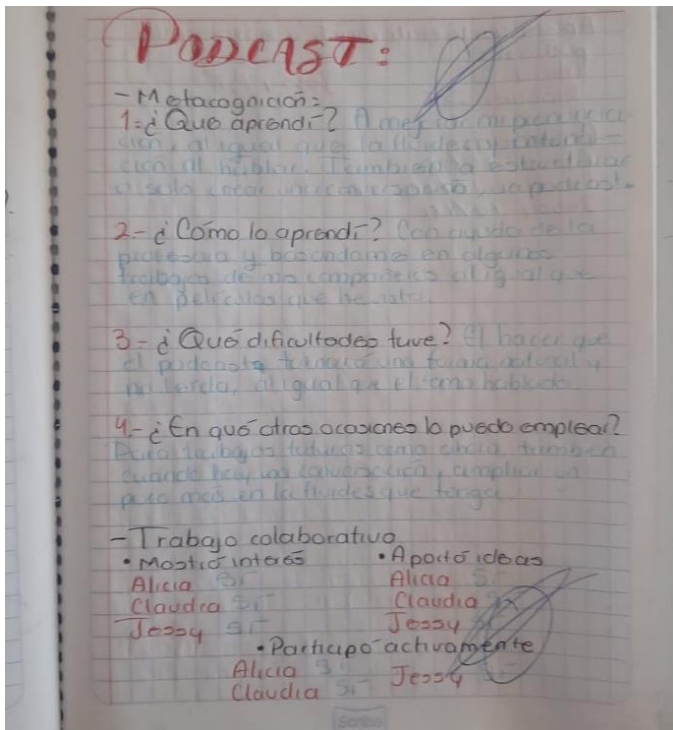 PODCAST:
- Metacognición:
1- ¿Qué aprendí? A mejorar mi pronuncia
ción, al igual que la fluidez y entona-
ción al hablar. También a estructurar
o solo crear una conversación
2.- ¿Cómo lo aprendí? Con ayuda de la
profesora y basandome en algunos
trabajos de mis compañeros al igual que
en películas que he visto.
3- ¿Qué dificultades tuve? El hacer que
el podcast tomara una forma natural y
no lerda, al igual que el como hablado
4- ¿En qué otras ocasiones lo puedo emplear?
Para trabajos futuros como ahora también
cuando haya una conversación, ampliar un
poco más en la fluides que tenga
- Trabajo colaborativo
• Mostró interés • Aportó ideas
Alicia Sí Alicia Sí
Claudia Sí Claudia
Jessy Sí Jessy
• Participó activamente
Alicia Sí Jessy
Claudia Sí
Scribe